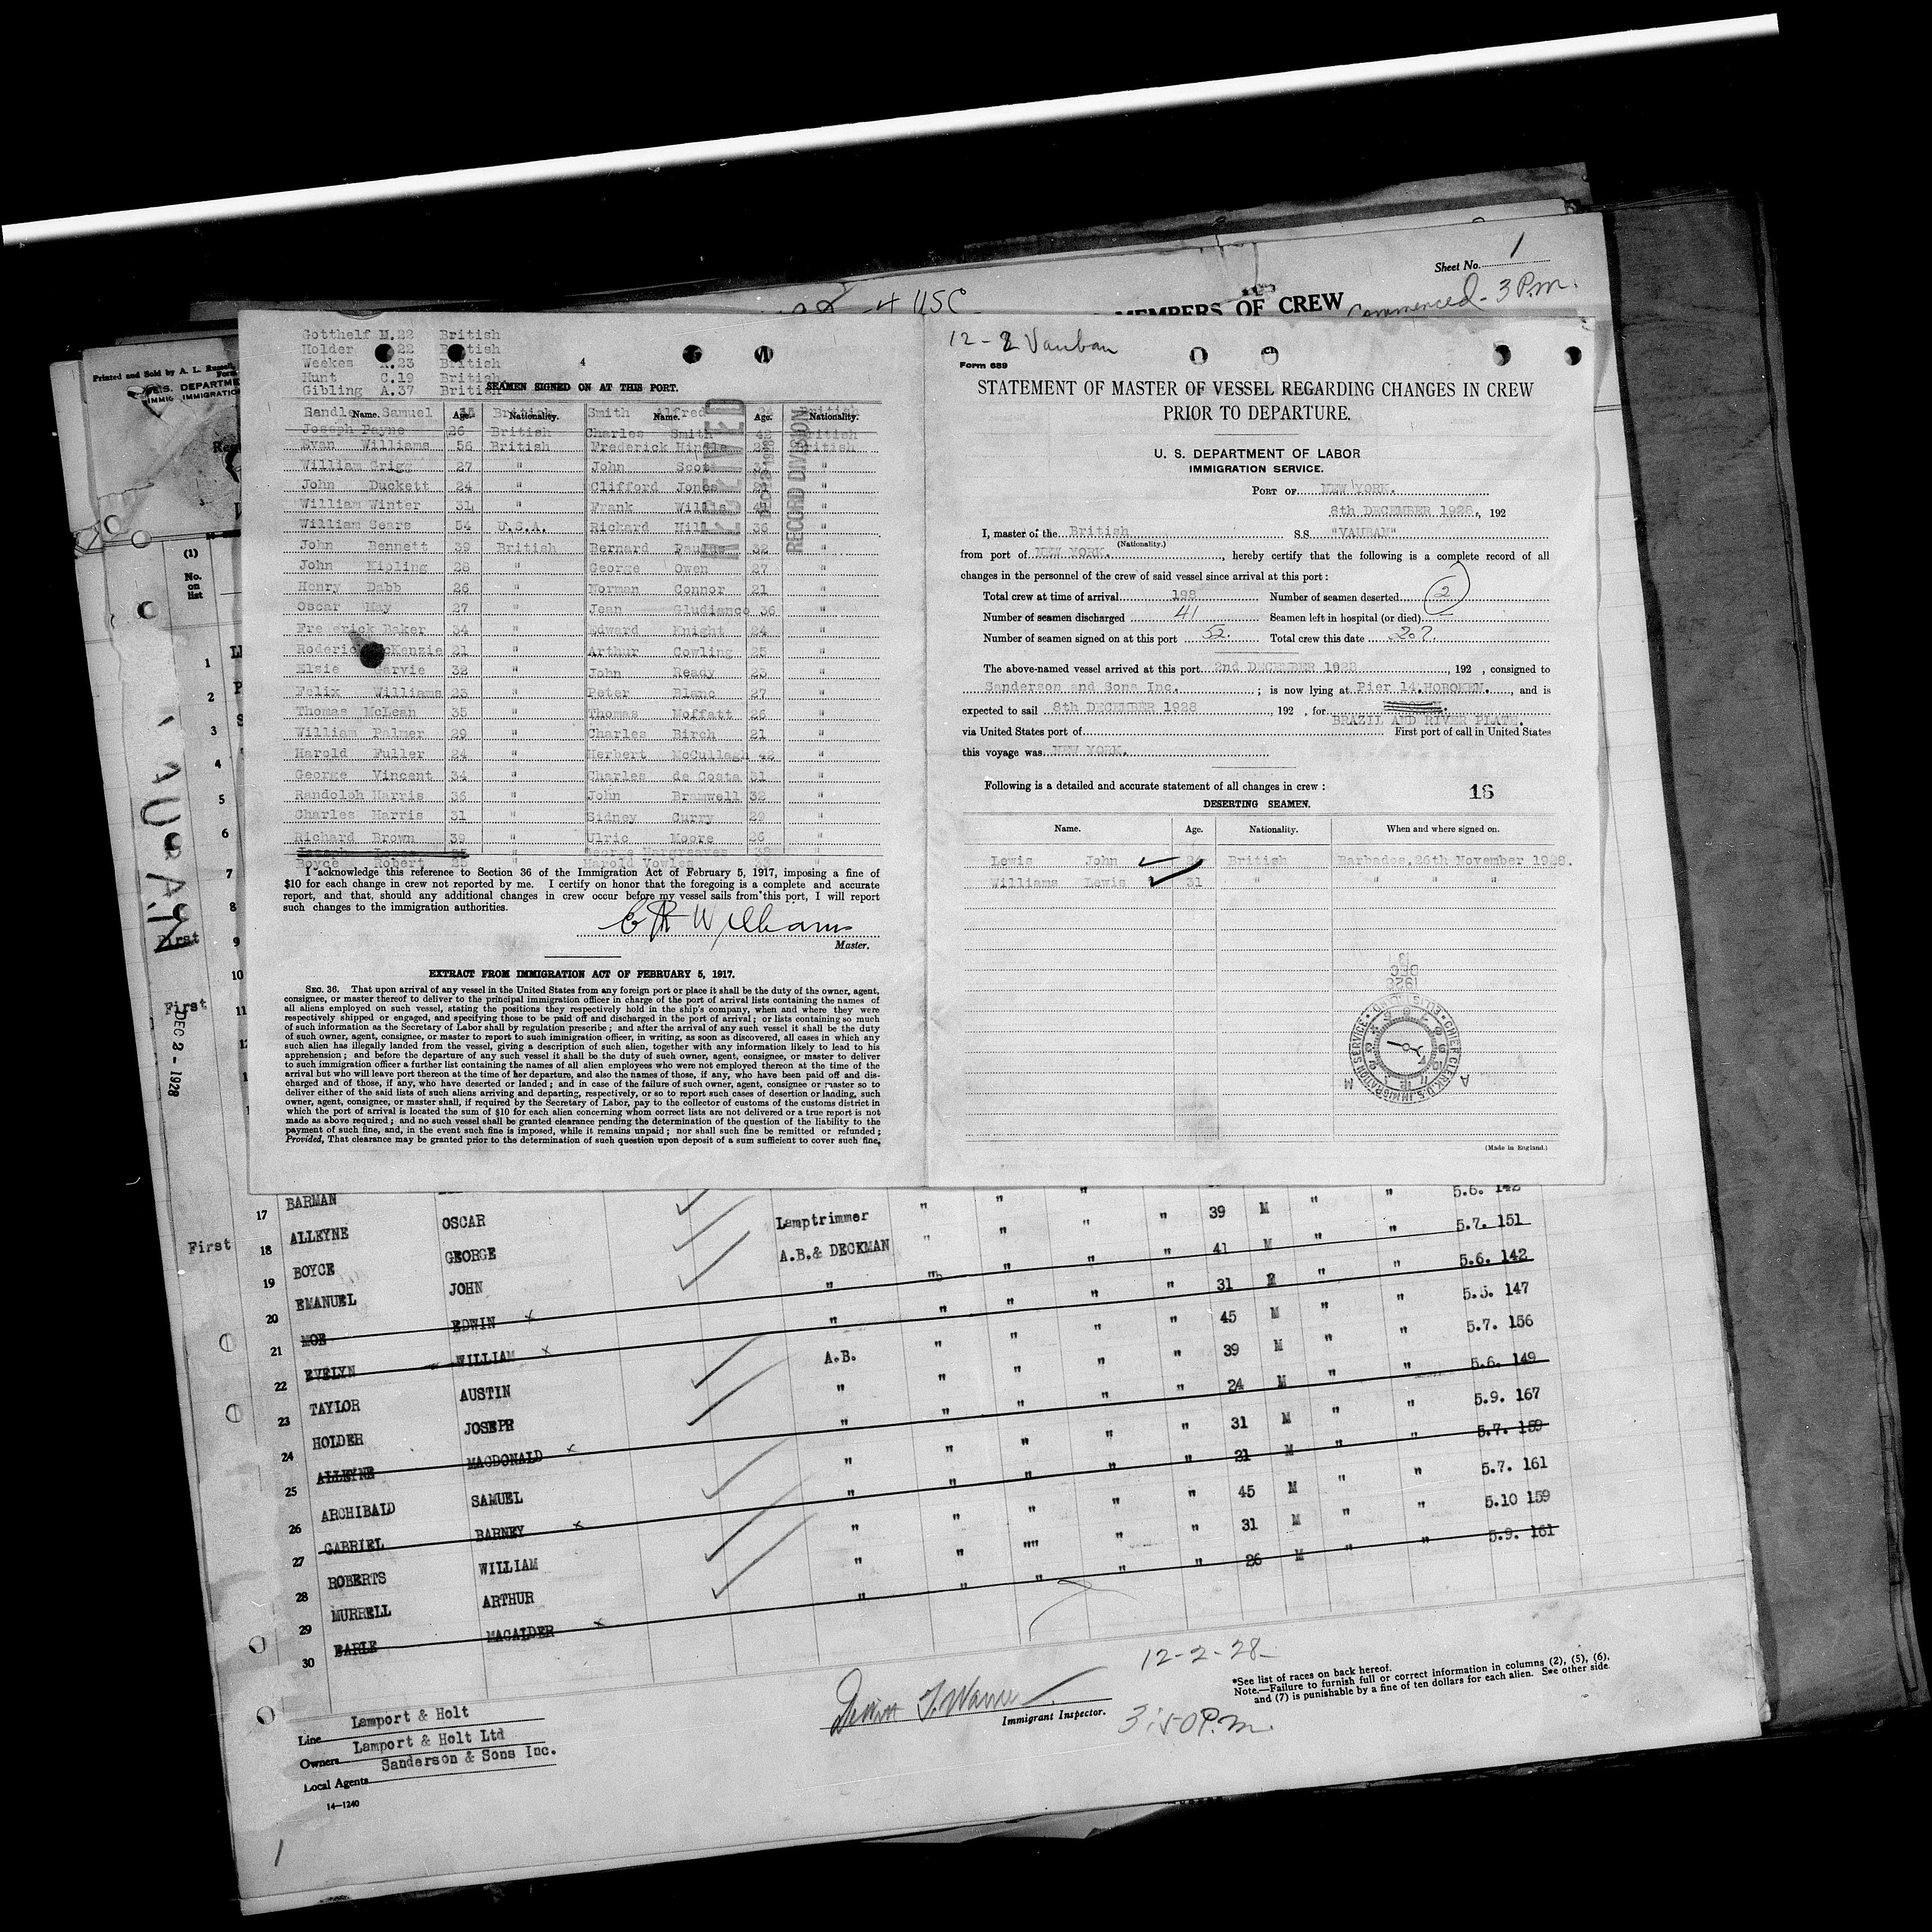 Sheet No. 1
4 USC
MEMBERS OF CREW
Commenced - 3 P.m.
Printed and Sold by A. L.
U.S. DEPARTME
IMMIGRATION
(1)
No.
on
list
VAUBAN
DEC 2 - 1928
First
First
First
Gotthelf M.22 British
Holder 22 British
Weekes 23 British
Hunt C.19 British
Gibling A.37 British
4
SEAMEN SIGNED ON AT THIS PORT.
Name. Age. Nationality. Name. Age. Nationality.
Randle Samuel British Smith Alfred British
Joseph Payne 26 British Charles Smith 42 British
Evan Williams 56 British Frederick British
William Grigg 27 " John Scott "
John Duckett 24 " Clifford Jones "
William Winter 31 " Frank Willis "
William Sears 54 U.S.A. Richard Hill 36 "
John Bennett 39 British Bernard 32 "
John Kipling 28 " George Owen 27 "
Henry Dabb 26 " Norman Connor 21 "
Oscar May 27 " Jean Giudiance 36 "
Frederick Baker 34 " Edward Knight 24 "
Roderick McKenzie 21 " Arthur Cowling 25 "
Elsie Harvie 32 " John Ready 23 "
Felix Williams 23 " Peter Blanc 27 "
Thomas McLean 35 " Thomas Moffatt 26 "
William Palmer 29 " Charles Birch 21 "
Harold Fuller 24 " Herbert McCullagh 42 "
George Vincent 34 " Charles de Costa 31 "
Randolph Harris 36 " John Bramwell 32 "
Charles Harris 31 " Sidney Curry 29 "
Richard Brown 39 " Ulric Moore 26 "
Joseph 25 " George Hargreaves 38 "
Boyce Robert 25 " Harold Vowles "
RECEIVED
RECORD DIVISION
I acknowledge this reference to Section 36 of the Immigration Act of February 5, 1917, imposing a fine of
$10 for each change in crew not reported by me. I certify on honor that the foregoing is a complete and accurate
report, and that, should any additional changes in crew occur before my vessel sails from this port, I will report
such changes to the immigration authorities.
Williams
Master.
EXTRACT FROM IMMIGRATION ACT OF FEBRUARY 5, 1917.
SEC. 36. That upon arrival of any vessel in the United States from any foreign port or place it shall be the duty of the owner, agent,
consignee, or master thereof to deliver to the principal immigration officer in charge of the port of arrival lists containing the names of
all aliens employed on such vessel, stating the positions they respectively hold in the ship's company, when and where they were
respectively shipped or engaged, and specifying those to be paid off and discharged in the port of arrival; or lists containing so much
of such information as the Secretary of Labor shall by regulation prescribe; and after the arrival of any such vessel it shall be the duty
of such owner, agent, consignee, or master to report to such immigration officer, in writing, as soon as discovered, all cases in which any
such alien has illegally landed from the vessel, giving a description of such alien, together with any information likely to lead to his
apprehension; and before the departure of any such vessel it shall be the duty of such owner, agent, consignee, or master to deliver
to such immigration officer a further list containing the names of all alien employees who were not employed thereon at the time of the
arrival but who will leave port thereon at the time of her departure, and also the names of those, if any, who have been paid off and dis-
charged and of those, if any, who have deserted or landed; and in case of the failure of such owner, agent, consignee or master so to
deliver either of the said lists of such aliens arriving and departing, respectively, or so to report such cases of desertion or landing, such
owner, agent, consignee, or master, shall, if required by the Secretary of Labor, pay to the collector of customs of the customs district in
which the port of arrival is located the sum of $10 for each alien concerning whom correct lists are not delivered or a true report is not
made as above required; and no such vessel shall be granted clearance pending the determination of the question of the liability to the
payment of such fine, and, in the event such fine is imposed, while it remains unpaid; nor shall such fine be remitted or refunded;
Provided, That clearance may be granted prior to the determination of such question upon deposit of a sum sufficient to cover such fine,
12-2 Vauban
Form 689
STATEMENT OF MASTER OF VESSEL REGARDING CHANGES IN CREW
PRIOR TO DEPARTURE.
U. S. DEPARTMENT OF LABOR
IMMIGRATION SERVICE.
PORT OF NEW YORK.
8th DECEMBER 1928., 192
I, master of the British SS "VAUBAN"
(Nationality.)
from port of NEW YORK. , hereby certify that the following is a complete record of all
changes in the personnel of the crew of said vessel since arrival at this port:
Total crew at time of arrival 198 Number of seamen deserted 2
Number of seamen discharged 41 Seamen left in hospital (or died)
Number of seamen signed on at this port 52. Total crew this date 207.
The above-named vessel arrived at this port 2nd DECEMBER 1928 , 192 , consigned to
Sanderson and Sons Inc. ; is now lying at Pier 14.HOBOKEN. , and is
expected to sail 8th DECEMBER 1928 , 192 , for
BRAZIL AND RIVER PLATE.
via United States port of First port of call in United States
this voyage was NEW YORK.
Following is a detailed and accurate statement of all changes in crew:
16
DESERTING SEAMEN.
Name. Age. Nationality. When and where signed on.
Lewis John British Barbados. 26th November 1928.
Williams Lewis 31 " " " "
1928
DEC
13
CHIEF CLERK U.S. IMMIGRATION SERVICE ELLIS ISLAND
A M
(Made in England.)
1
2
3
4
5
6
7
8
9
10
11
17 BARMAN " " " " " " 5.6. 142
18 ALLEYNE OSCAR Lamptrimmer " " " " 39 M " " 5.7. 151
19 BOYCE GEORGE A.B.& DECKMAN " " " " 41 M " " 5.6. 142
20 EMANUEL JOHN " " " " " 31 M " " 5.3. 147
21 MOE EDWIN x " " " " " 45 M " " 5.7. 156
22 EVELYN WILLIAM x A.B. " " " " 39 M " " 5.6. 149
23 TAYLOR AUSTIN " " " " " 24 M " " 5.9. 167
24 HOLDER JOSEPH " " " " " 31 M " " 5.7. 159
25 ALLEYNE MACDONALD x " " " " " 21 M " " 5.7. 161
26 ARCHIBALD SAMUEL " " " " " 45 M " " 5.10 159
27 GABRIEL BARNEY x " " " " " 31 M " " 5.9. 161
28 ROBERTS WILLIAM " " "" " " 26 M " "
29 MURRELL ARTHUR " " " "
30 EARLE MACALDER x "
Line Lamport & Holt
Owners Lamport & Holt Ltd
Local Agents Sanderson & Sons Inc.
14—1240
Immigrant Inspector.
12-2-28
3:50 P.m.
*See list of races on back hereof.
Note.—Failure to furnish full or correct information in columns (2), (5), (6),
and (7) is punishable by a fine of ten dollars for each alien. See other side.
1